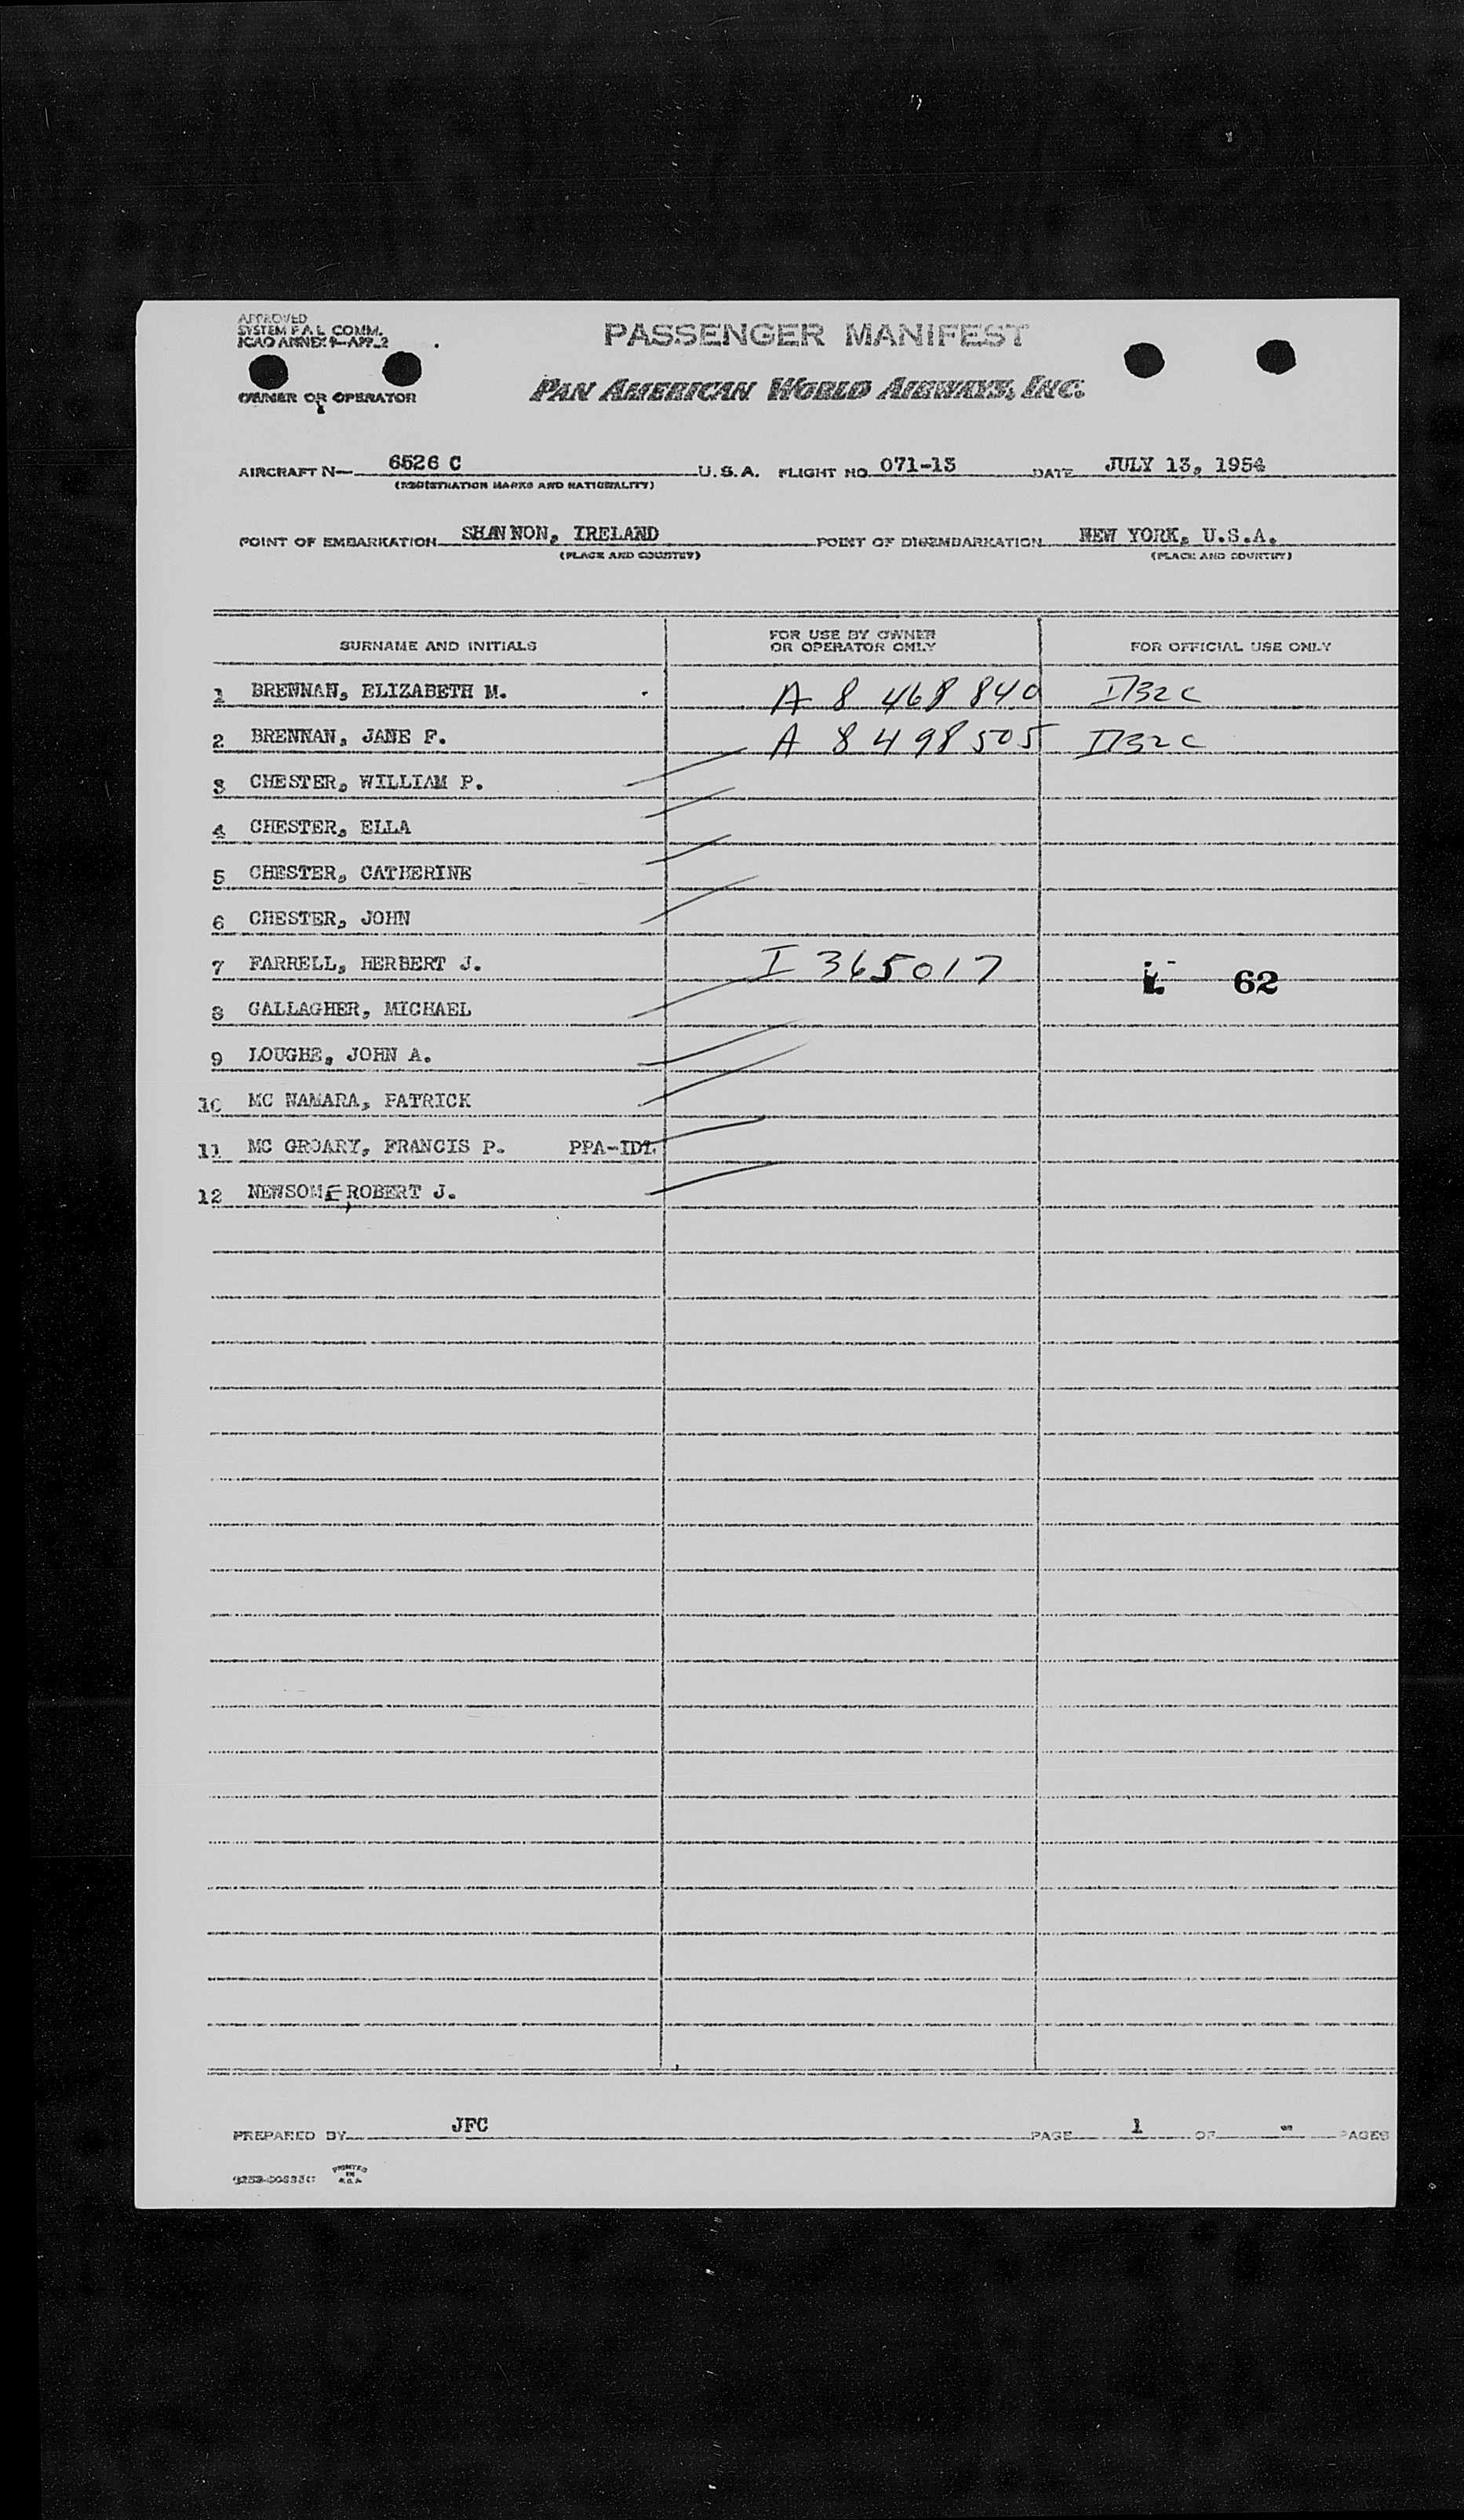 APPROVED
SYSTEM F.A.L. COMM.
ICAO ANNEX 9—APP. 2
PASSENGER MANIFEST
OWNER OR OPERATOR
PAN AMERICAN WORLD AIRWAYS, INC.
AIRCRAFT N— 6526 C U.S.A. FLIGHT NO. 071-13 DATE JULY 13, 1954
(REGISTRATION MARKS AND NATIONALITY)
POINT OF EMBARKATION SHANNON, IRELAND POINT OF DISEMBARKATION NEW YORK, U.S.A.
(PLACE AND COUNTRY) (PLACE AND COUNTRY)
SURNAME AND INITIALS FOR USE BY OWNER OR OPERATOR ONLY FOR OFFICIAL USE ONLY
1 BRENNAN, ELIZABETH M. A 8 468 840
2 BRENNAN, JANE F. A 8 498 505
3 CHESTER, WILLIAM P.
4 CHESTER, ELLA
5 CHESTER, CATHERINE
6 CHESTER, JOHN
7 FARRELL, HERBERT J. I 365017 62
8 GALLAGHER, MICHAEL
9 LOUGHE, JOHN A.
10 MC NAMARA, PATRICK
11 MC GROARY, FRANCIS P. PPA-IDL
12 NEWSOME, ROBERT J.
PREPARED BY JFC PAGE 1 OF - PAGES
PRINTED
IN
U.S.A.